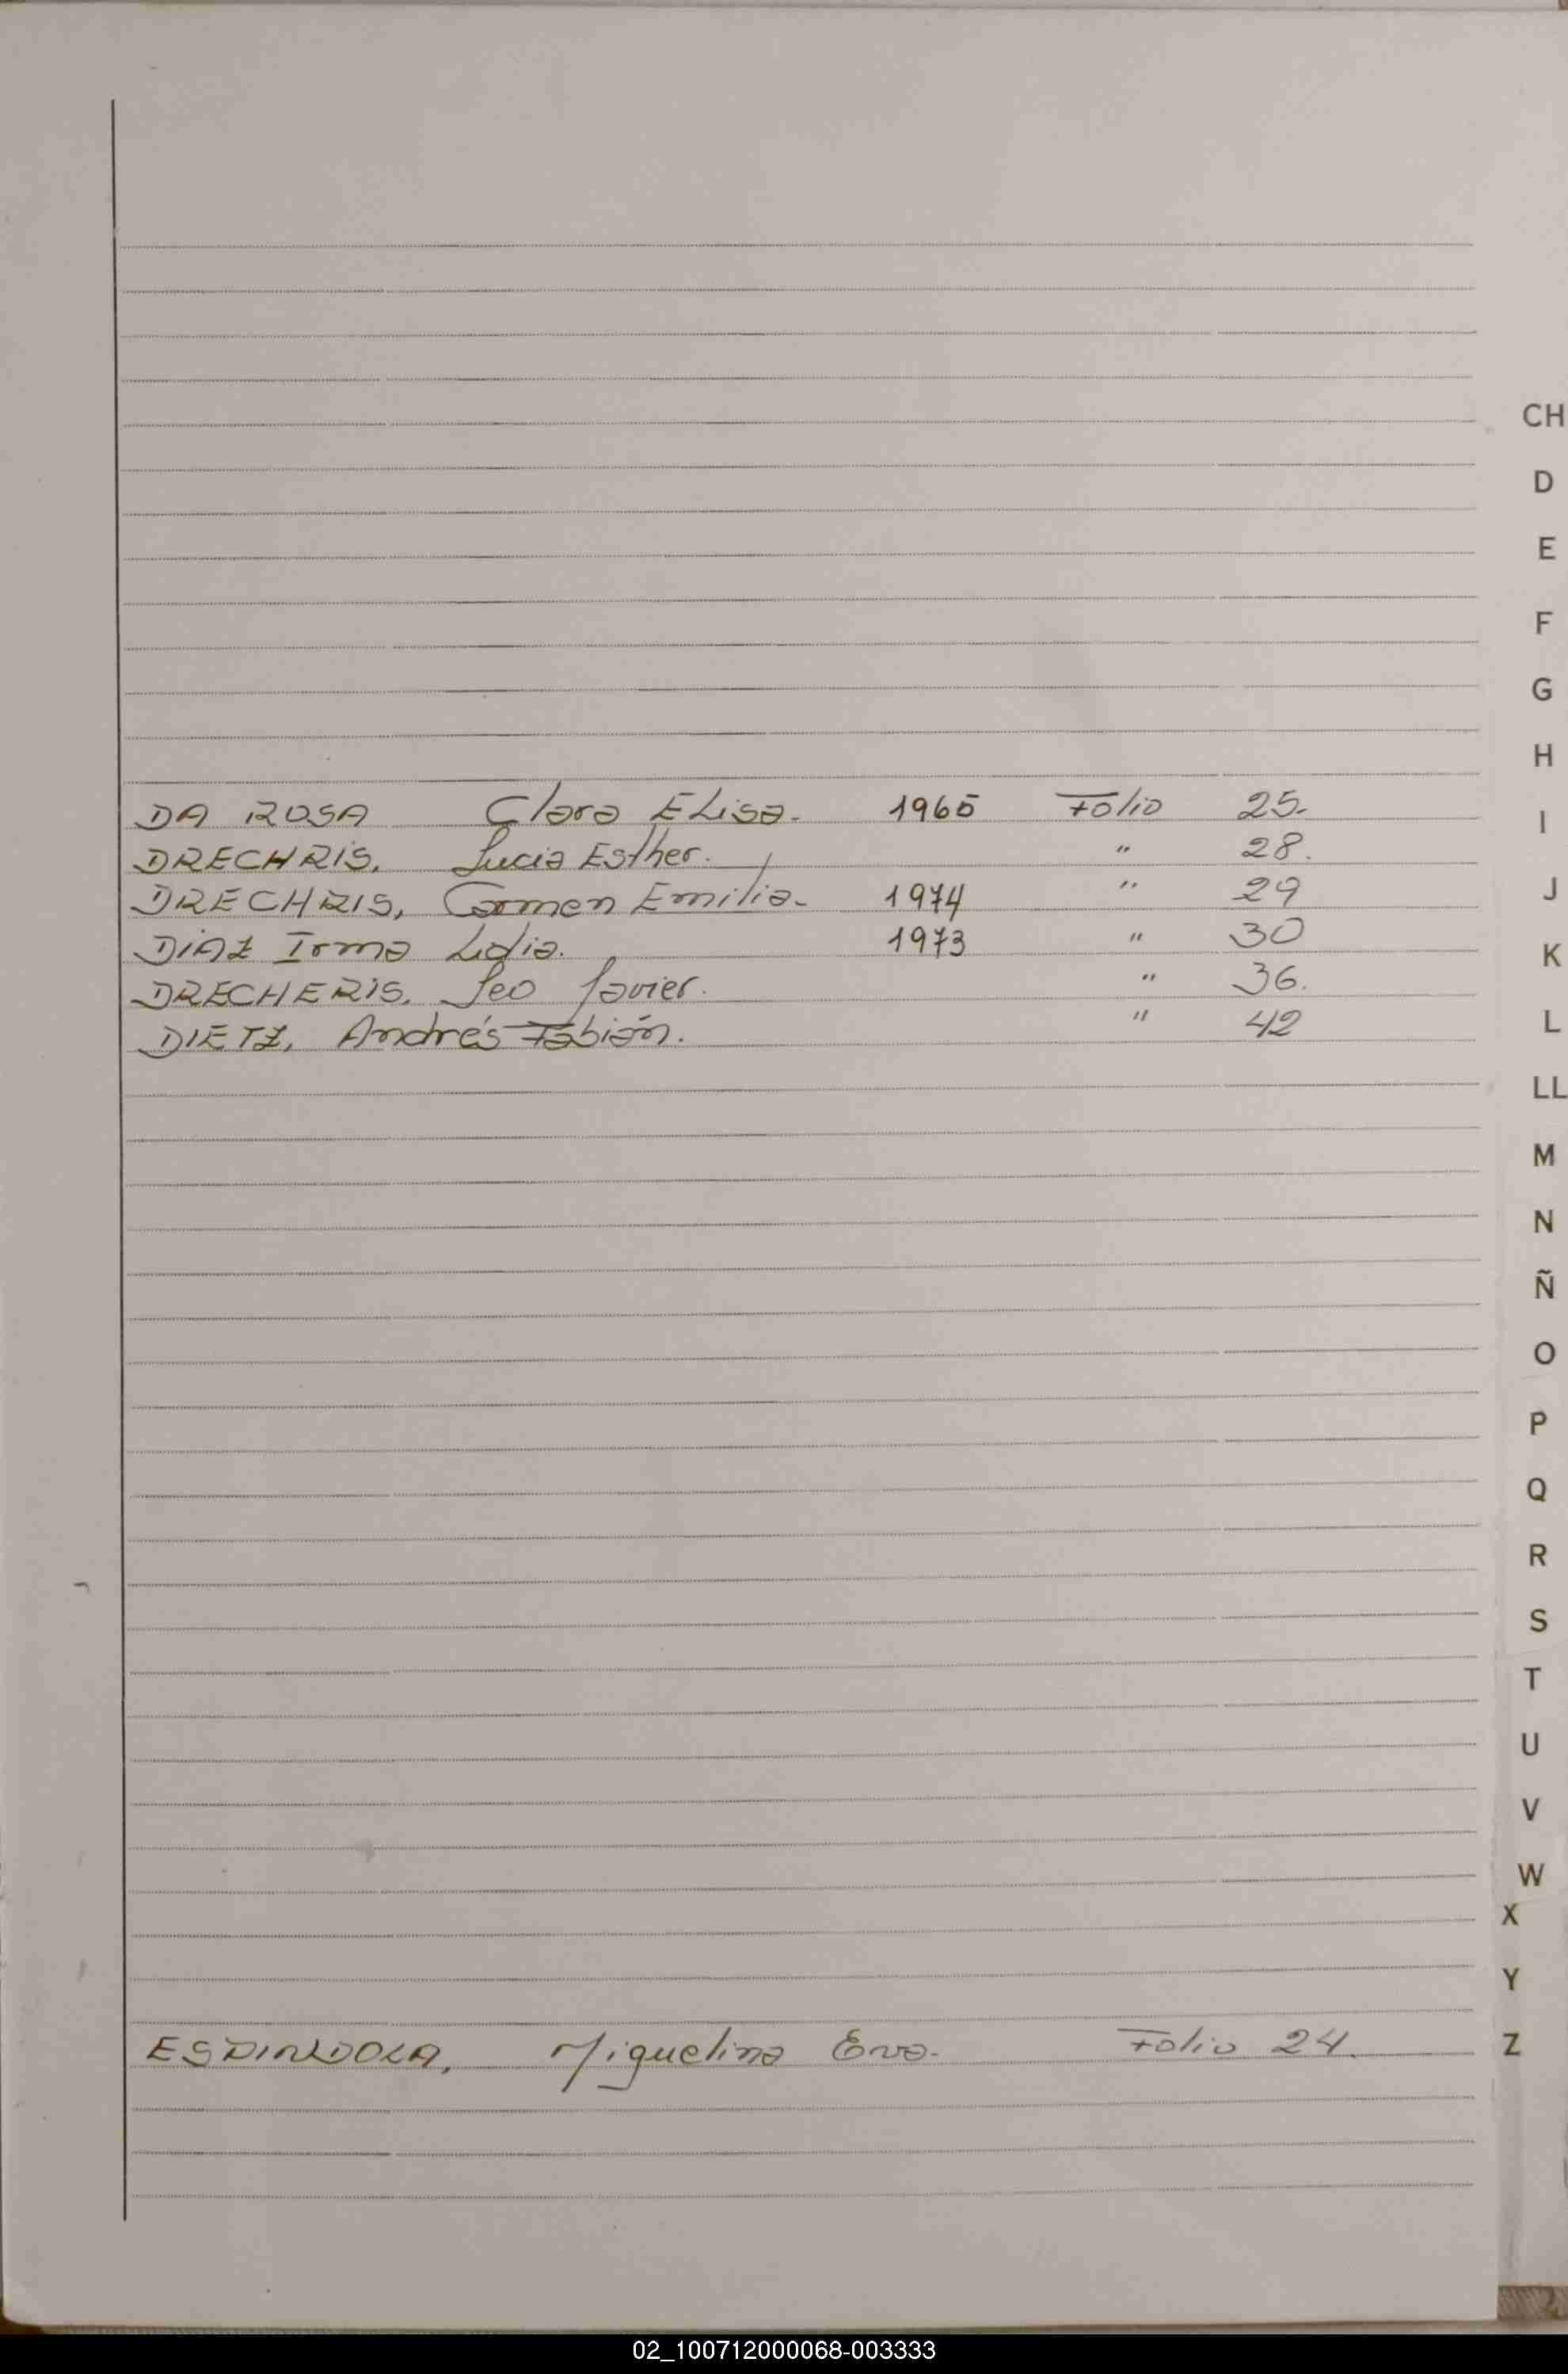 CH
D
E
F
G
H
DA ROSA Clara Elisa. 1965 Folio 25.
I
DRECHRIS, Lucia Esther. " 28.
DRECHRIS, Carmen Emilia. 1974 " 29
J
DIAZ Irma Lidia. 1973 " 30
K
DRECHERIS, Leo Javier. " 36.
DIETZ, Andrés Fabián. " 42
L
LL
M
N
Ñ
O
P
Q
R
S
T
U
V
W
X
Y
ESPINDOLA, Miguelina Eva. Folio 24.
Z
02_100712000068-003333